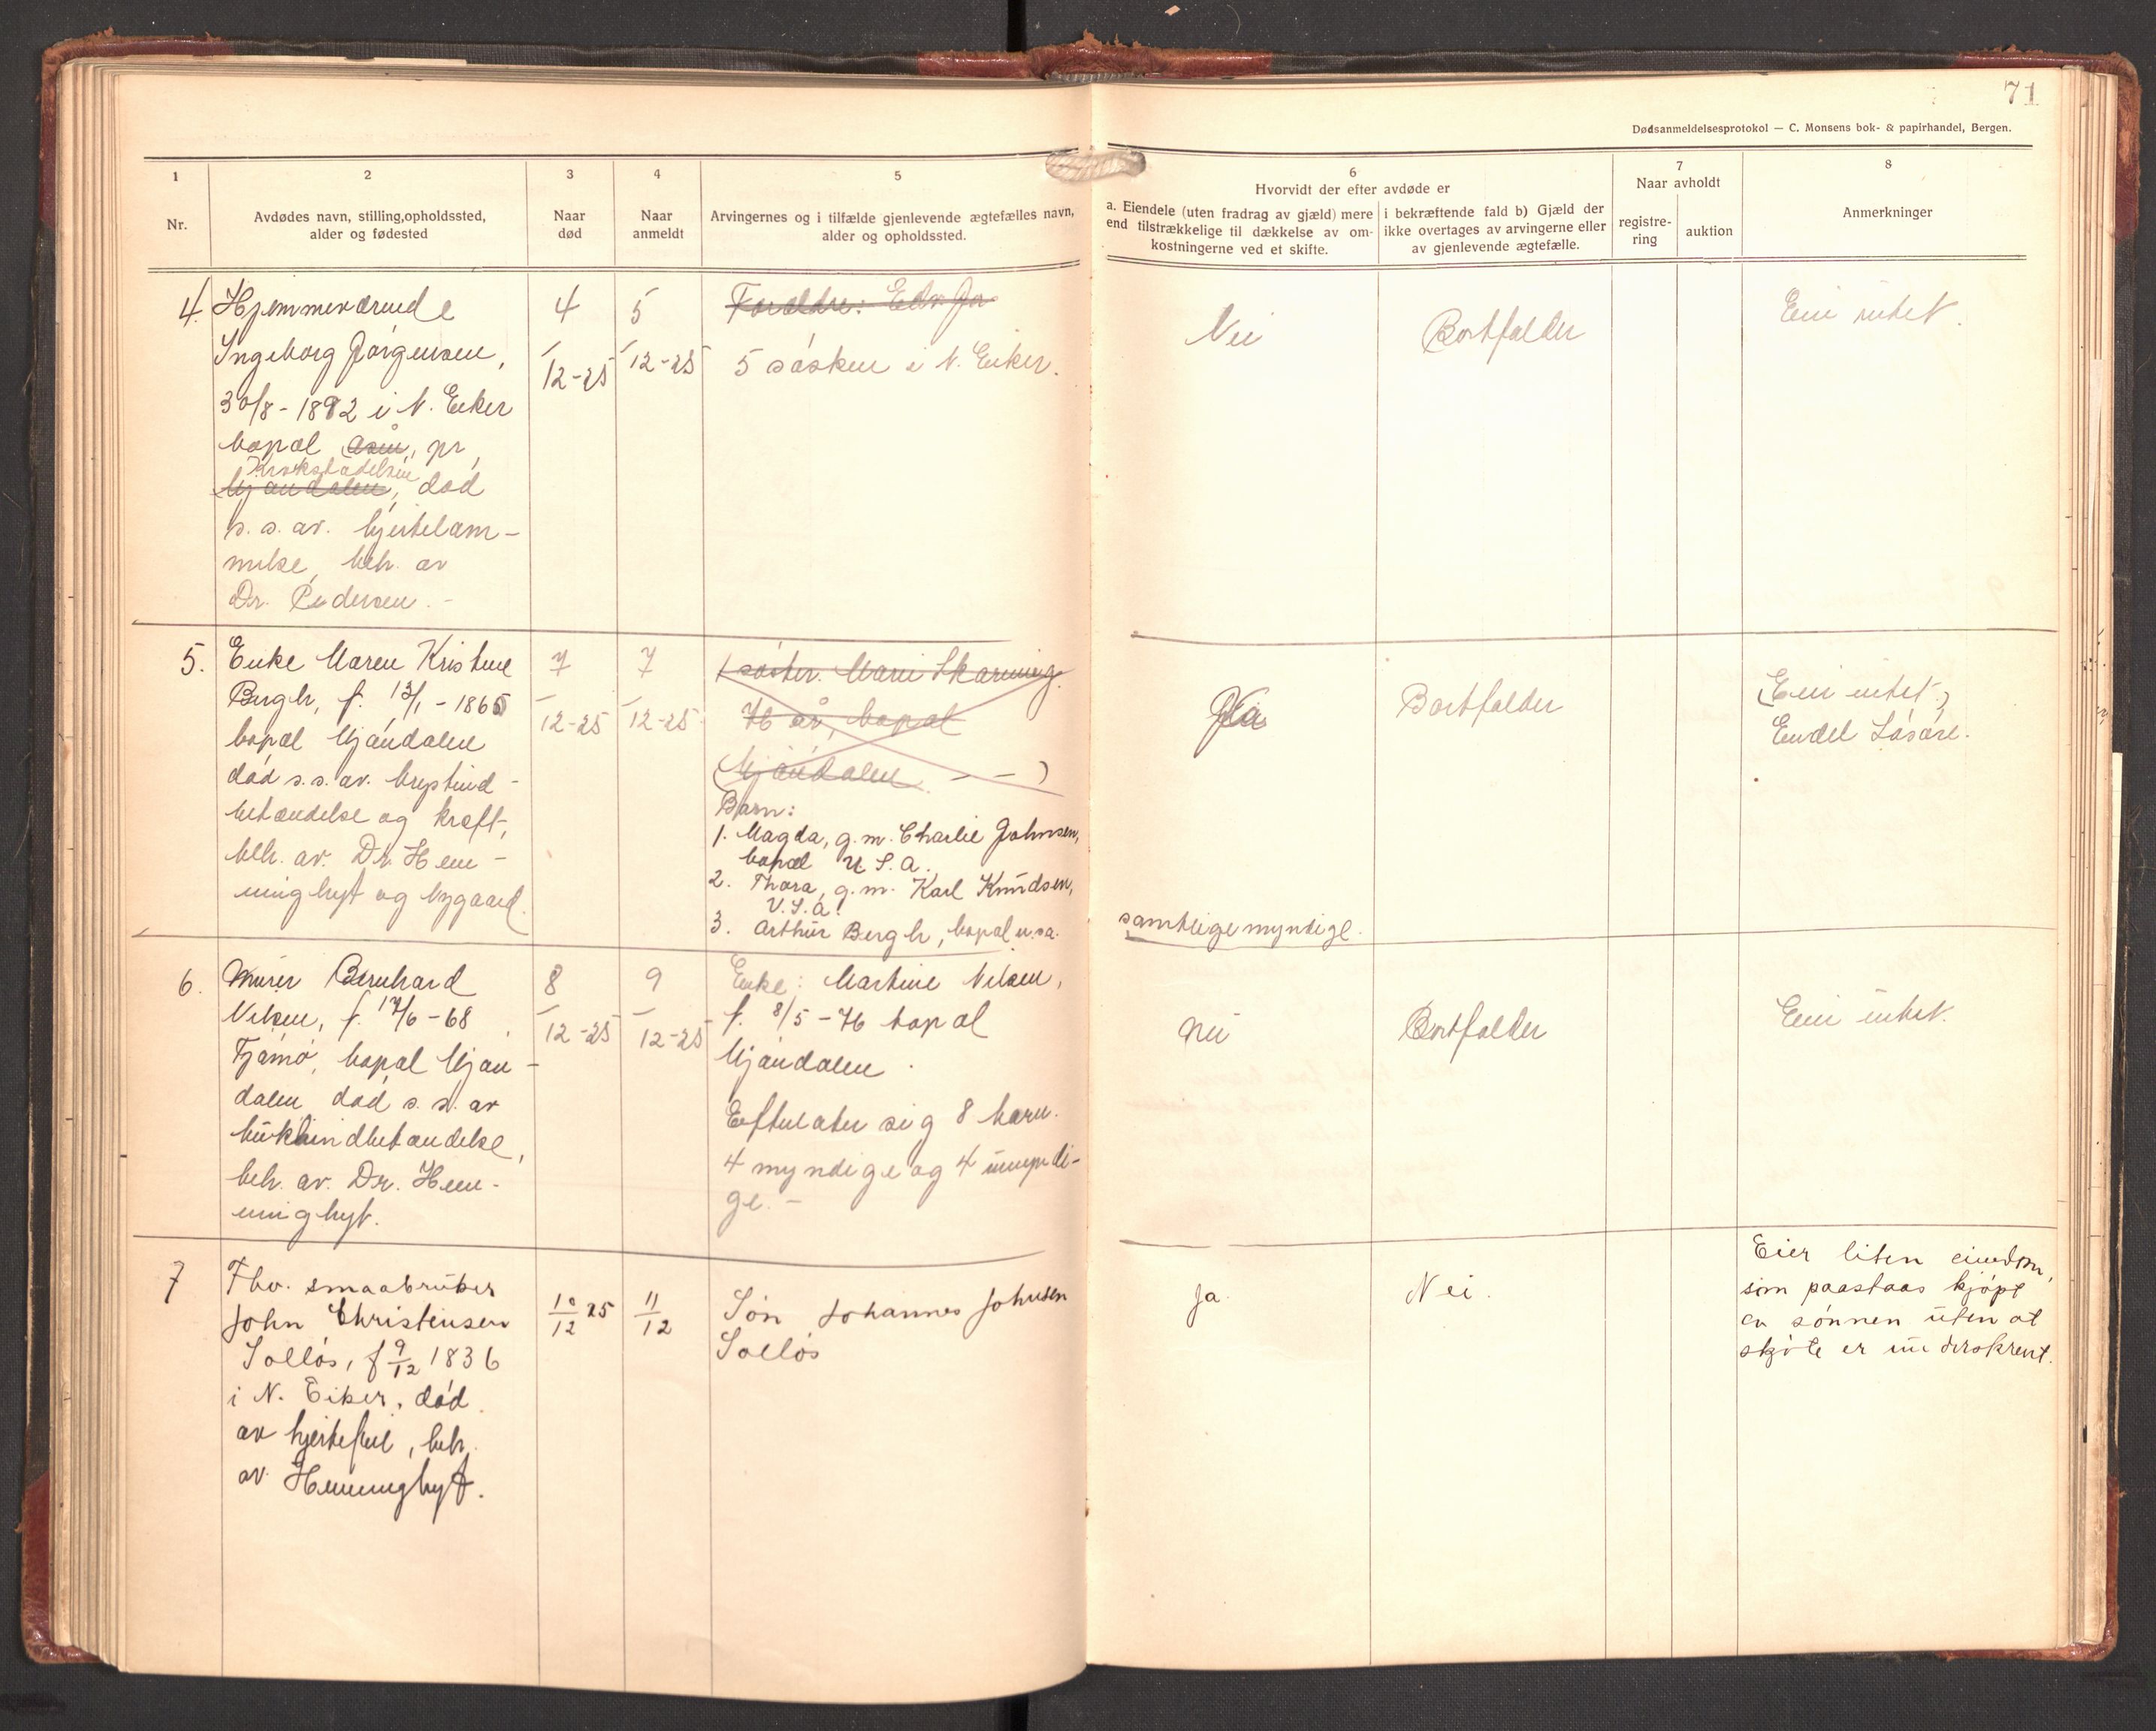 71
Dødsanmeldelsesprotokol — C. Monsens bok- & papirhandel, Bergen.
1
Nr.
2
Avdødes navn, stilling,opholdssted,
alder og fødested
3
Naar
død
4
Naar
anmeldt
5
Arvingernes og i tilfælde gjenlevende ægtefælles navn,
alder og opholdssted.
6
Hvorvidt der efter avdøde er
a. Eiendele (uten fradrag av gjæld) mere
end tilstrækkelige til dækkelse av om-
kostningerne ved et skifte.
i bekræftende fald b) Gjæld der
ikke overtages av arvingerne eller
av gjenlevende ægtefælle.
7
Naar avholdt
registre-
ring
auktion
8
Anmerkninger
4.
Hjemmeværende
Ingeborg Jörgensen,
30/8 - 1892 i N. Eeker
bopæl Åsen, pr,
Krokstadelven
Mjøndalen, död
s. s. av. hjertelam-
melse, beh. av
Dr. Pedersen. -
4
/
12-25
5
/
12-25
Forældre: Edv. Jø
5 sösken i N. Eeker.
Nei
Bortfalder
Eier intet.
5.
Enke Maren Kristine
Bergh, f. 13/1 - 1865
bopæl Mjöndalen
död s.s. av. brystind-
betændelse og kræft,
beh. av. Dr. Hen-
ninghyt og Nygaard.
7
/
12-25
7
/
12-25
1 söster. Marie Skarning.
76 år, bopæl
(Mjöndalen. - - )
Barn:
1. Magda, g.m. Charlie Johnsen,
bopæl U.S.A.
2. Thora, g.m. Karl Knudsen,
U.S.A.
3. Arthur Bergh, bopæl u.s.a.
samtlige myndige.
Ja
Bortfalder
(Eier intet)
Endel Lösöre.
6.
Murer Bernhard
Nilsen, f. 17/6 - 68
Tjömö, bopæl Mjön-
dalen, död s. s. av
bukhindbetændelse,
beh. av. Dr. Hen-
ninghyt.
8
/
12-25
9
/
12-25
Enke: Martine Nilsen,
f. 8/5 - 76 bopæl
Mjöndalen.
Eefterlater sig 8 barn.
4 myndige og 4 umyndi-
ge. -
Nei
Bortfalder
Eier intet.
7
Fhv. smaabruker
John Christensen
Solløs, f 9/12 1836
i N. Eiker, død
av hjertefeil, beh.
av Henninghyt.
10/12 25
11/12
Søn Johannes Johnsen
Solløs
Ja.
Nei.
Eier liten eiendom,
som paastaas kjøpt
av sønnen uten at
skjøte er underskrevet.